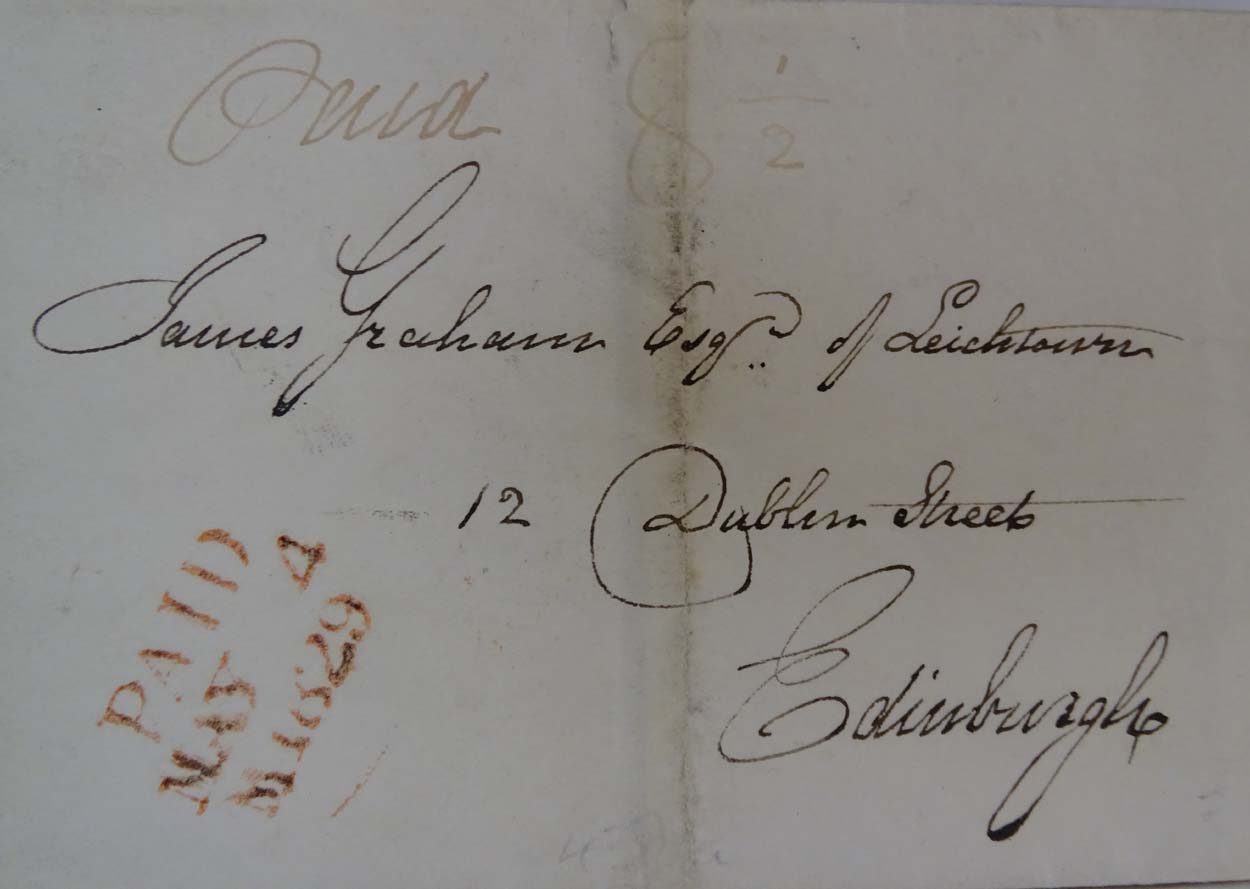 Paid 8 1/2
James Graham Esqr. of Leichtown
12 Dublin Street
Edinburgh
PAID
MAY A
1829